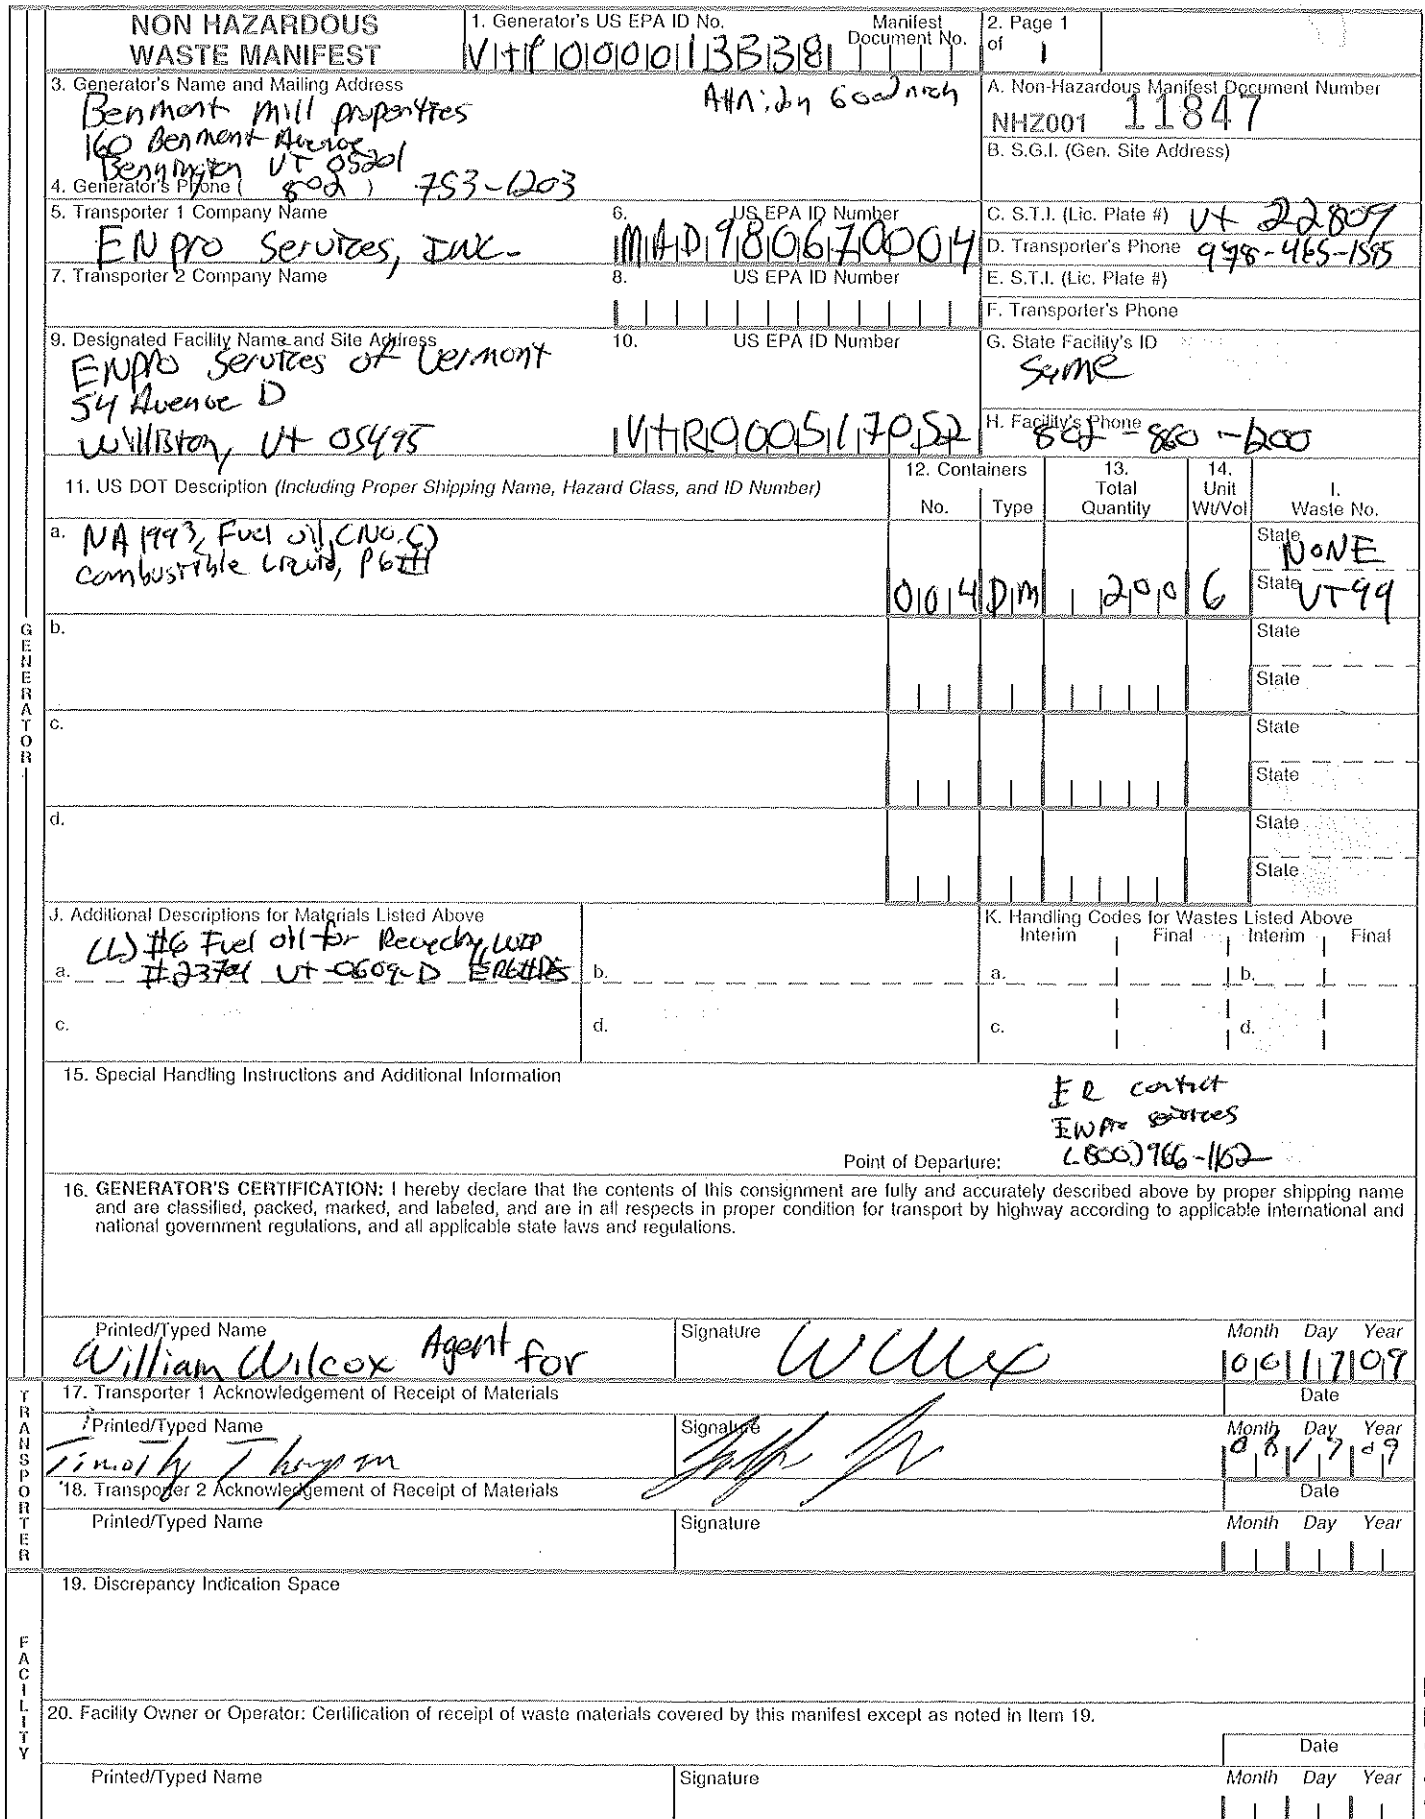 NON HAZARDOUS
WASTE MANIFEST
1. Generator's US EPA ID No.
VTP000013338
Manifest
Document No.
2. Page 1
of
1
3. Generator's Name and Mailing Address
Benmont Mill properties
160 Benmont Avenue
Bennington VT 05201
Attn: Jon Goodrich
A. Non-Hazardous Manifest Document Number
NHZ001 11847
B. S.G.I. (Gen. Site Address)
4. Generator's Phone ( 802 ) 753-1203
5. Transporter 1 Company Name
ENpro Services, INC.
6. US EPA ID Number
MAD980670004
C. S.T.I. (Lic. Plate #) Vt 22809
D. Transporter's Phone 978-465-1595
7. Transporter 2 Company Name
8. US EPA ID Number
E. S.T.I. (Lic. Plate #)
F. Transporter's Phone
9. Designated Facility Name and Site Address
ENpro Services of Vermont
54 Avenue D
Williston, Vt 05495
10. US EPA ID Number
VTR000517052
G. State Facility's ID
Same
H. Facility's Phone
802-860-1200
11. US DOT Description (Including Proper Shipping Name, Hazard Class, and ID Number)
12. Containers
No. Type
13.
Total
Quantity
14.
Unit
Wt/Vol
I.
Waste No.
a. NA 1993, Fuel oil, (NO. 6)
Combustible Liquid, PGIII
004 DM 200 G
State NONE
State VT99
b.
State
State
c.
State
State
d.
State
State
J. Additional Descriptions for Materials Listed Above
(L) #6 Fuel oil for
a. Vt-0609-D
b.
c.
d.
K. Handling Codes for Wastes Listed Above
Interim Final Interim Final
a. b.
c. d.
15. Special Handling Instructions and Additional Information
ER contact
ENPro services
Point of Departure: (800) 966-1102
16. GENERATOR'S CERTIFICATION: I hereby declare that the contents of this consignment are fully and accurately described above by proper shipping name
and are classified, packed, marked, and labeled, and are in all respects in proper condition for transport by highway according to applicable international and
national government regulations, and all applicable state laws and regulations.
Printed/Typed Name
William Wilcox Agent for
Signature
Month Day Year
17 09
17. Transporter 1 Acknowledgement of Receipt of Materials
Date
Printed/Typed Name
Timothy Thompson
Signature
Month Day Year
08 17 09
18. Transporter 2 Acknowledgement of Receipt of Materials
Date
Printed/Typed Name
Signature
Month Day Year
19. Discrepancy Indication Space
20. Facility Owner or Operator: Certification of receipt of waste materials covered by this manifest except as noted in Item 19.
Date
Printed/Typed Name
Signature
Month Day Year
GENERATOR
TRANSPORTER
FACILITY